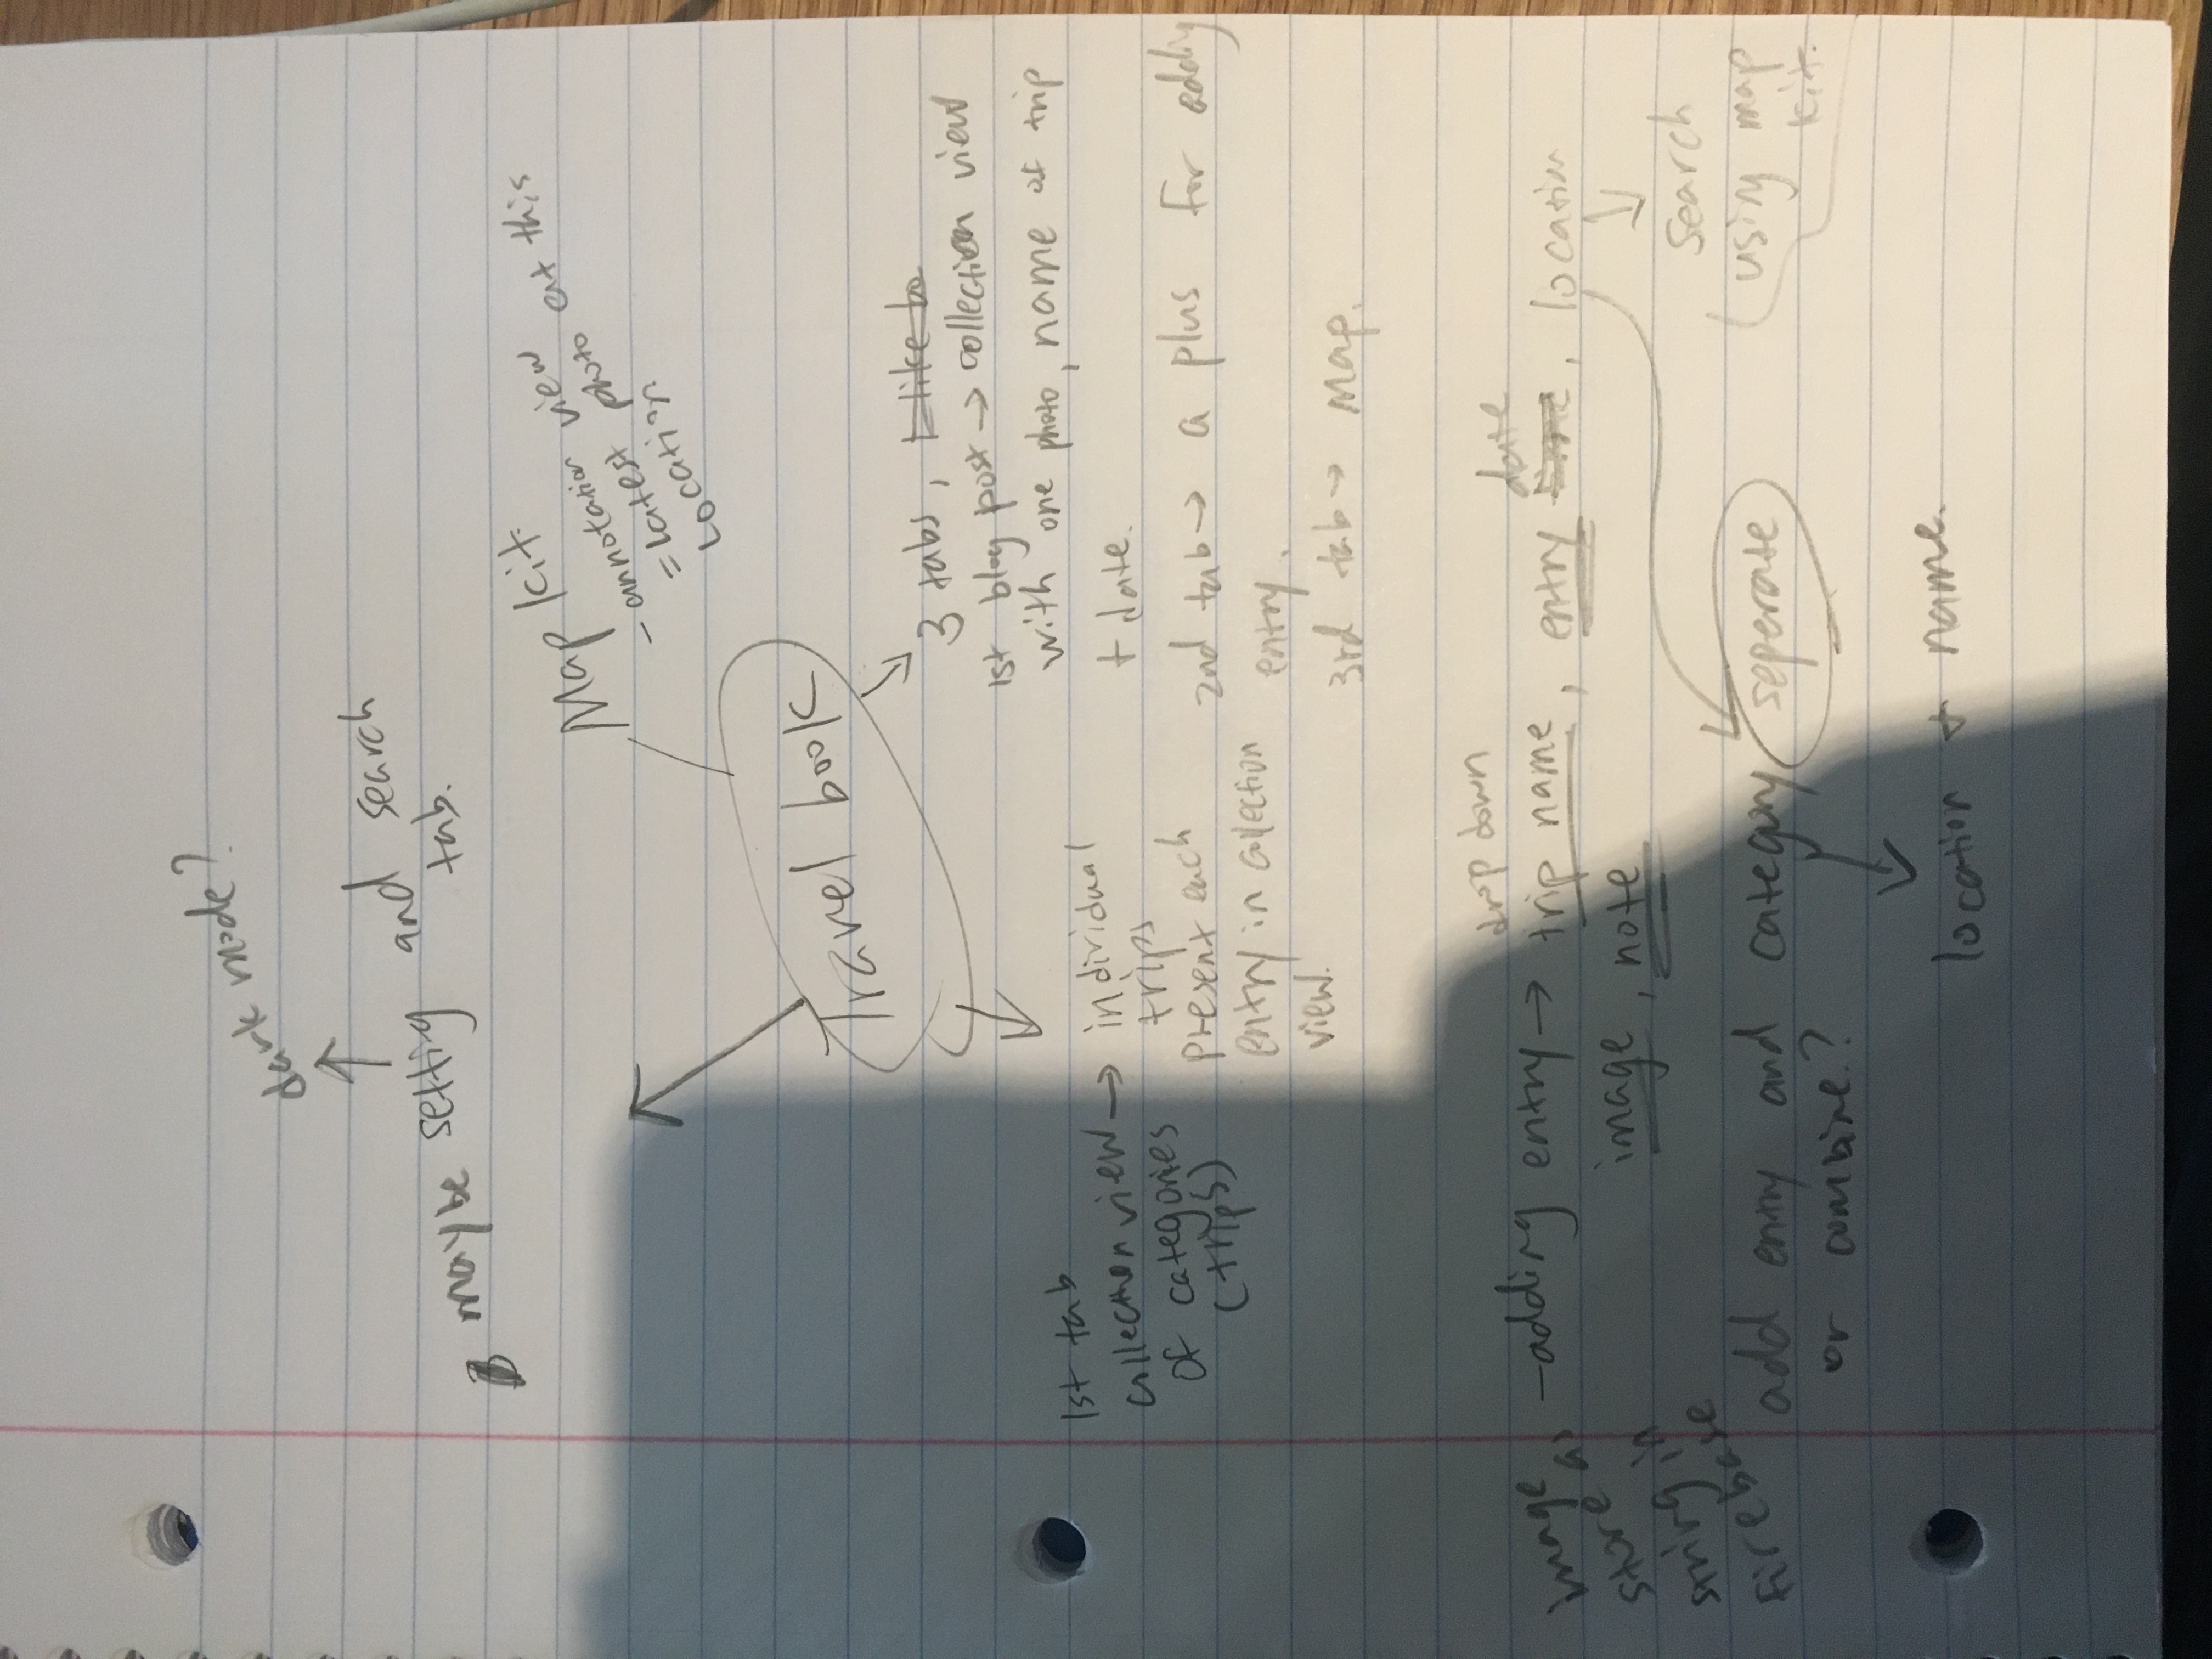 dark mode?
maybe settig and search
tab.
Map kit.
- annotation view
= latest photo at this
Location
Travel book
3 tabs, I like bo
1st blog post → collection view
with one photo, name of trip
+ date.
2nd tab → a plus for adding
entry.
3rd tab → Map.
1st tab
collection view →
of categories
(trips)
individual
trips
present each
entry in collection
view.
image
store as
string in
firebase
- adding entry → trip name, entry date, location
drop down
image, note
search
using map
kit.
add entry and category seperate
or combine.?
location + name.